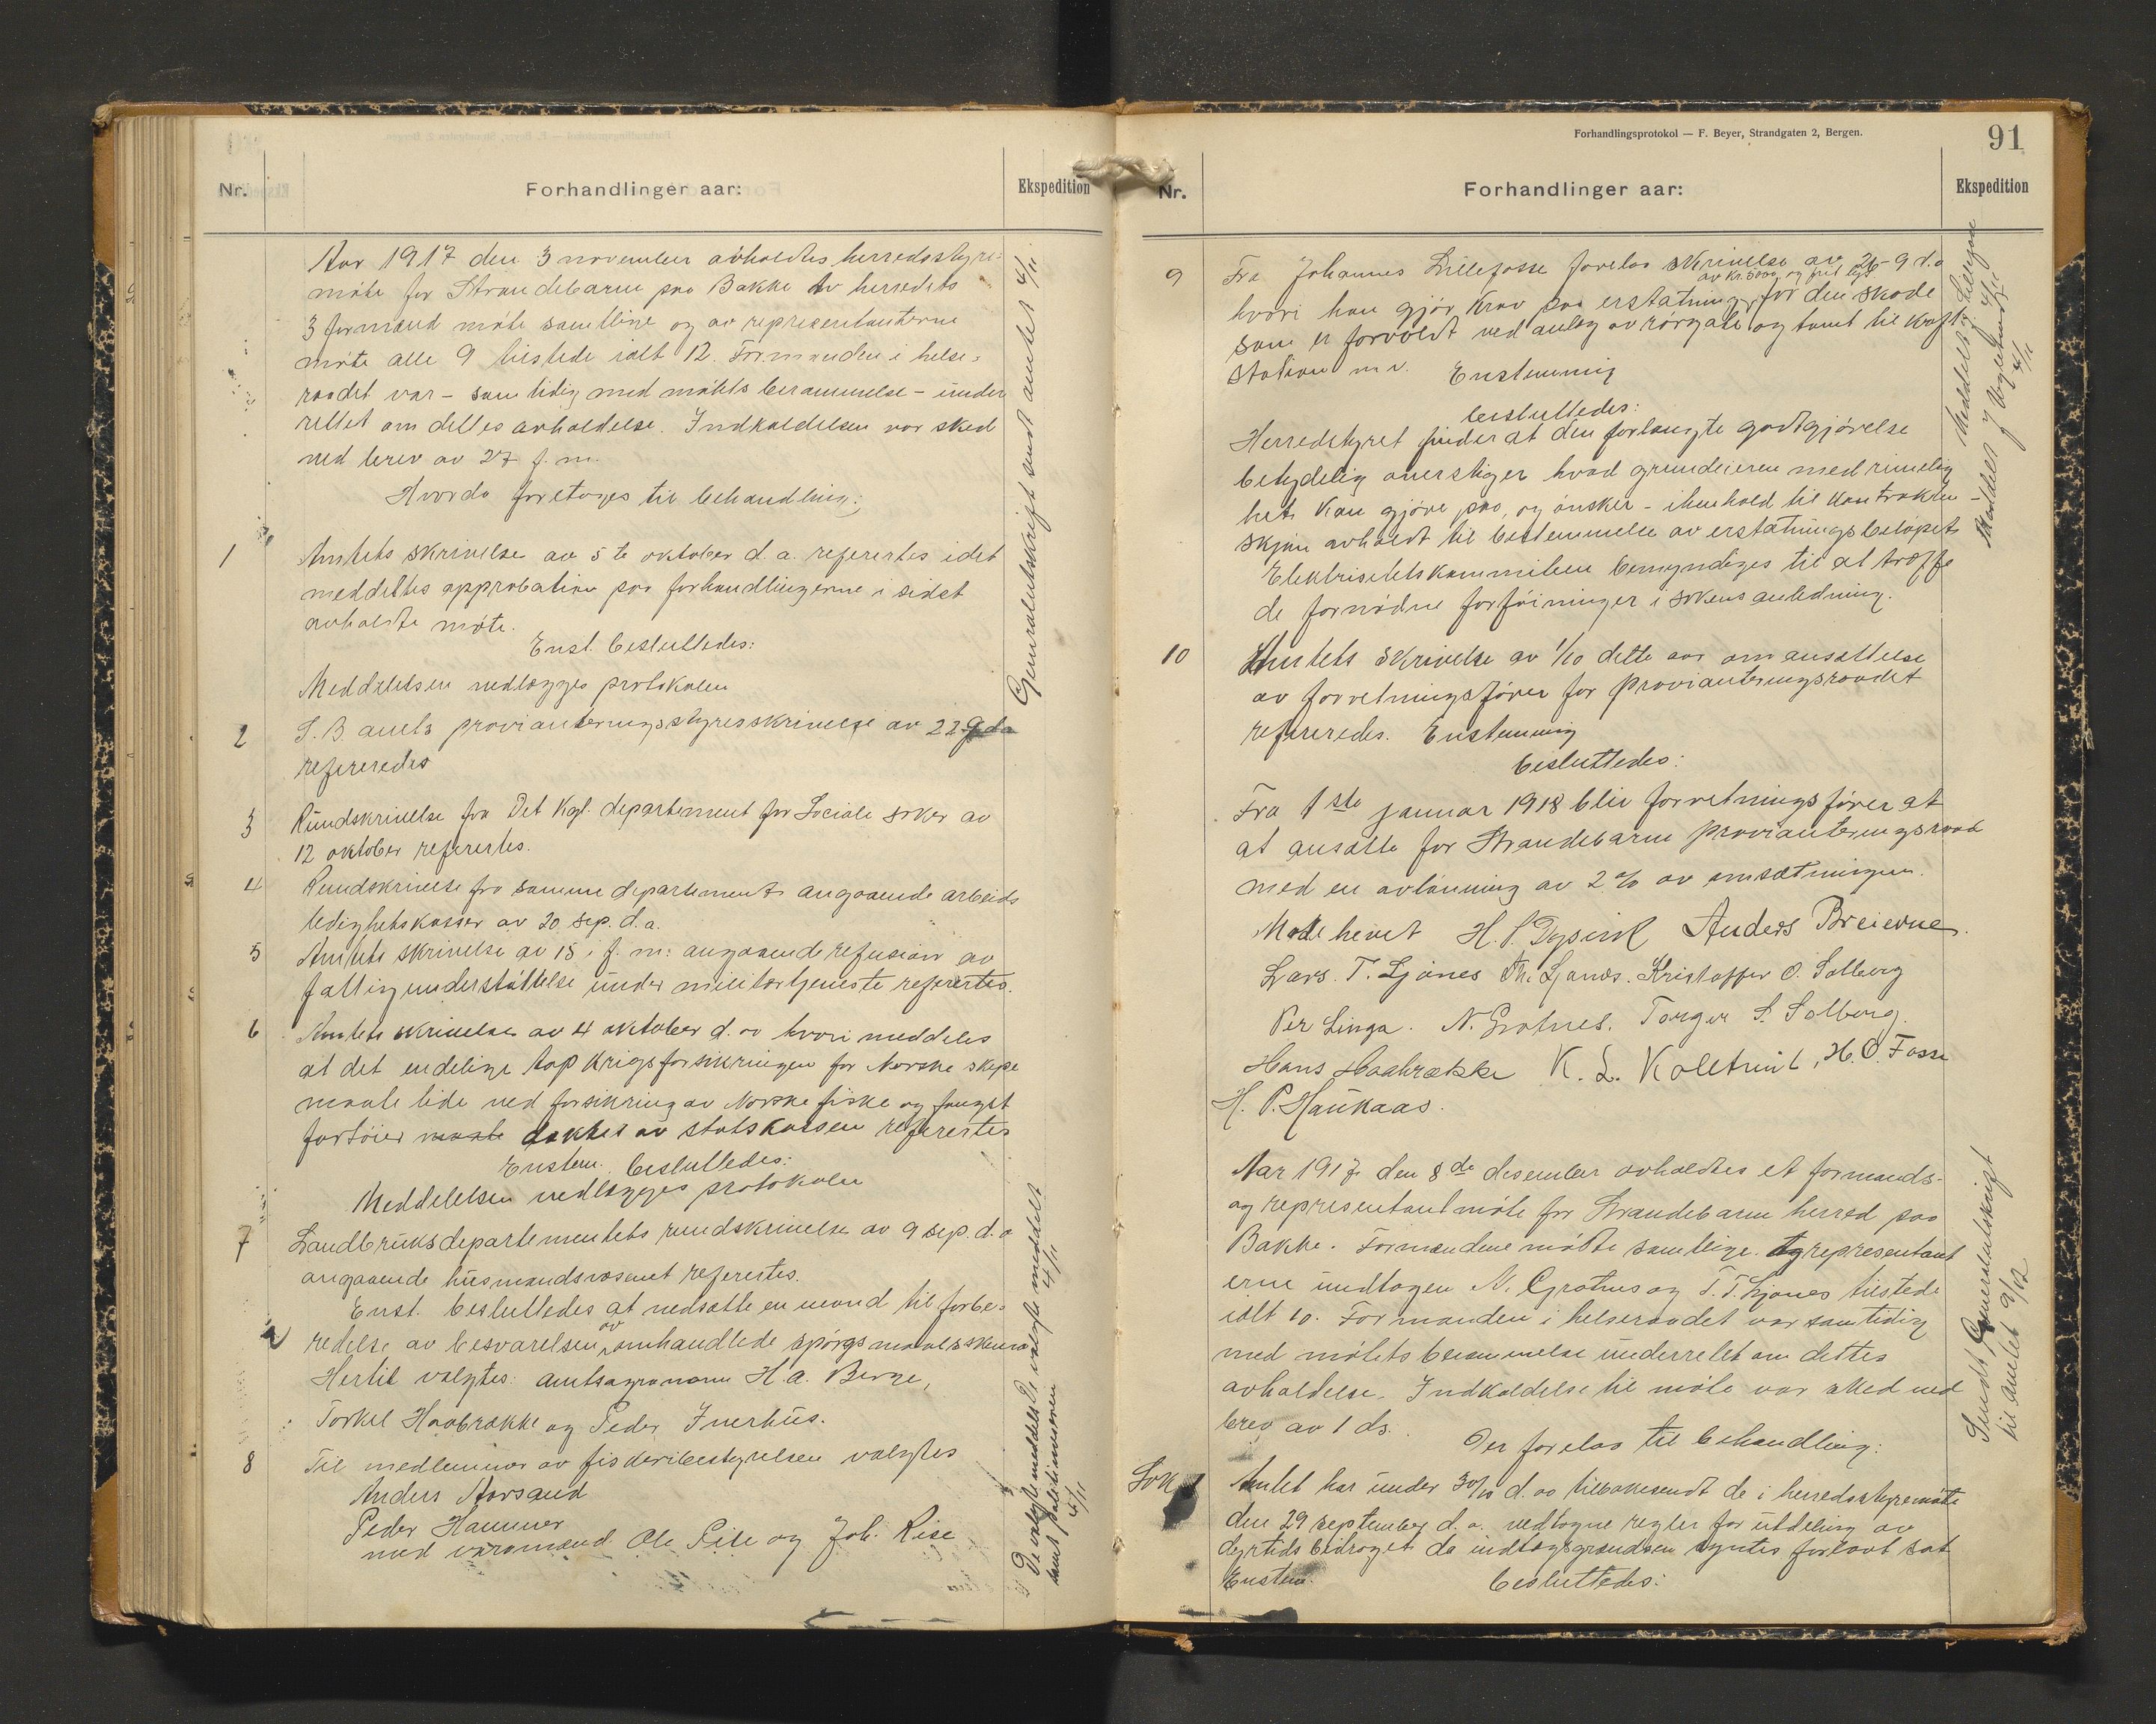 Nr.
Forhandlinger aar:
Ekspedition
Aar 1917 den 3 november avholdtes herredsstyre-
møte for Strandebarm paa Bakke av herredets
3 formænd møtte samtlige og av representanterne
møtte alle 9 tilstede ialt 12. Formanden i helse-
raadet var - samtidig med møtets berammelse - under
rettet om dettes avholdelse. Indkaldelsen var sked
ved brev av 27 f. m.
Hvorda foretoges til behandling:
1 Amtets skrivelse av 5te oktober d.a. referertes idet
meddeltes approbation paa forhandlingerne i sidst
avholdte møte.
Enst. besluttedes:
Meddelelsen vedlægges protokolen
2 S. B. amts provianteringsstyres skrivelse av 22-9 da
refereredes
3 Rundskrivelse fra Det Kgl. departement for Sociale saker av
12 oktober referertes.
4 Rundskrivelse fra samme departement angaaende arbeids
ledighetskasser av 20 sep. d.a.
5 Amtets skrivelse av 15 i f. m. angaaende refusion av
fattigunderstøttelse under militærtjeneste referertes.
6 Amtets skrivelse av 4 oktober d. aa hvori meddeles
at det endelige tap krigsforsikringen for Norske skipe
maate lide ved forsikring av Norske fiske og fangst
fartøier maate dækkes av statskassen referertes
Enstem. besluttedes:
Meddelelsen vedlægges protokolen
7 Landbruksdepartementets rundskrivelse av 9 sep. d. a
angaaende husmandsvæsenet referertes.
Enst. besluttedes at nedsætte en nevnd til forbe-
redelse av besvarelsen av omhandlede spørgsmaalsskema
Hertil valgtes: amtsagronom H. a. Berge,
Torkel Haabrække og Peder Inerhus.
8 Til medlemmer av fiskeribestyrelsen valgtes
Anders Aarsand
Peder Hammer
med varamænd Ole Rise og Joh. Rise
Generalutskrift sendt amtet 4/11
De valgte meddelt 4/11
samt politimesteren
5/11
Forhandlingsprotokol — F. Beyer, Strandgaten 2, Bergen.
91
Nr.
Forhandlinger aar:
Ekspedition
9 Fra Johannes Lillefosse forelaa skrivelse av 26-9 d.a
av kr. 5000 og frit lys
hvori han gjør krav paa erstatning for den skade
som er forvoldt ved anlæg av rørgate og tomt til kraft
station m v. Enstemmig
besluttedes:
Herredstyret finder at den forlangte godtgjørelse
betydelig overstiger hvad grundeieren med rimelig
het kan gjøre paa, og ønsker - i henhold til kontrakten -
skjøn avholdt til bestemmelse av erstatningsbeløpet
Elektrisitetskommiteen bemyndiges til at træffe
de fornødne forføininger i sakens anledning.
10 Amtets skrivelse av 1/10 dette aar om ansættelse
av forretningsfører for provianteringsraadet
refereredes. Enstemmig
besluttedes:
Fra 1ste januar 1918 blir forretningsfører at
at ansætte for Strandebarm provianteringsraad
med en avlønning av 2% av omsætningen.
Møte hevet H. P. Dysvik Anders Breievne
Lars. T. Ljones Th. Ljones. Kristoffer O. Solberg
Per Linga. N. Grotnes. Torger S. Solberg.
Hans Haabrække K. L. Koltveit, H. O. Fosse
H. P. Haukaas.
Aar 1917 den 8de desember avholdtes et formands-
og representantmøte for Strandebarm herred paa
Bakke. Formændene møtte samtlige og representant
erne undtagen N. Grotnes og T. T. Ljones tilstede
ialt 10. Formanden i helseraadet var samtidig
med møtets berammelse underrettet om dettes
avholdelse. Indkaldelse til møte var sked ved
brev av 1 ds.
Der forelaa til behandling:
Sak 1 Amtet har under 30/10 d. aa tilbakesendt de i herredsstyremøte
den 29 september d. a. vedtagne regler for utdeling av
dyrtidsbidraget da indtægtsgrændsen syntes for lavt sat
Enstem. besluttedes:
Sendt Generalutskrift
til amtet 9/12